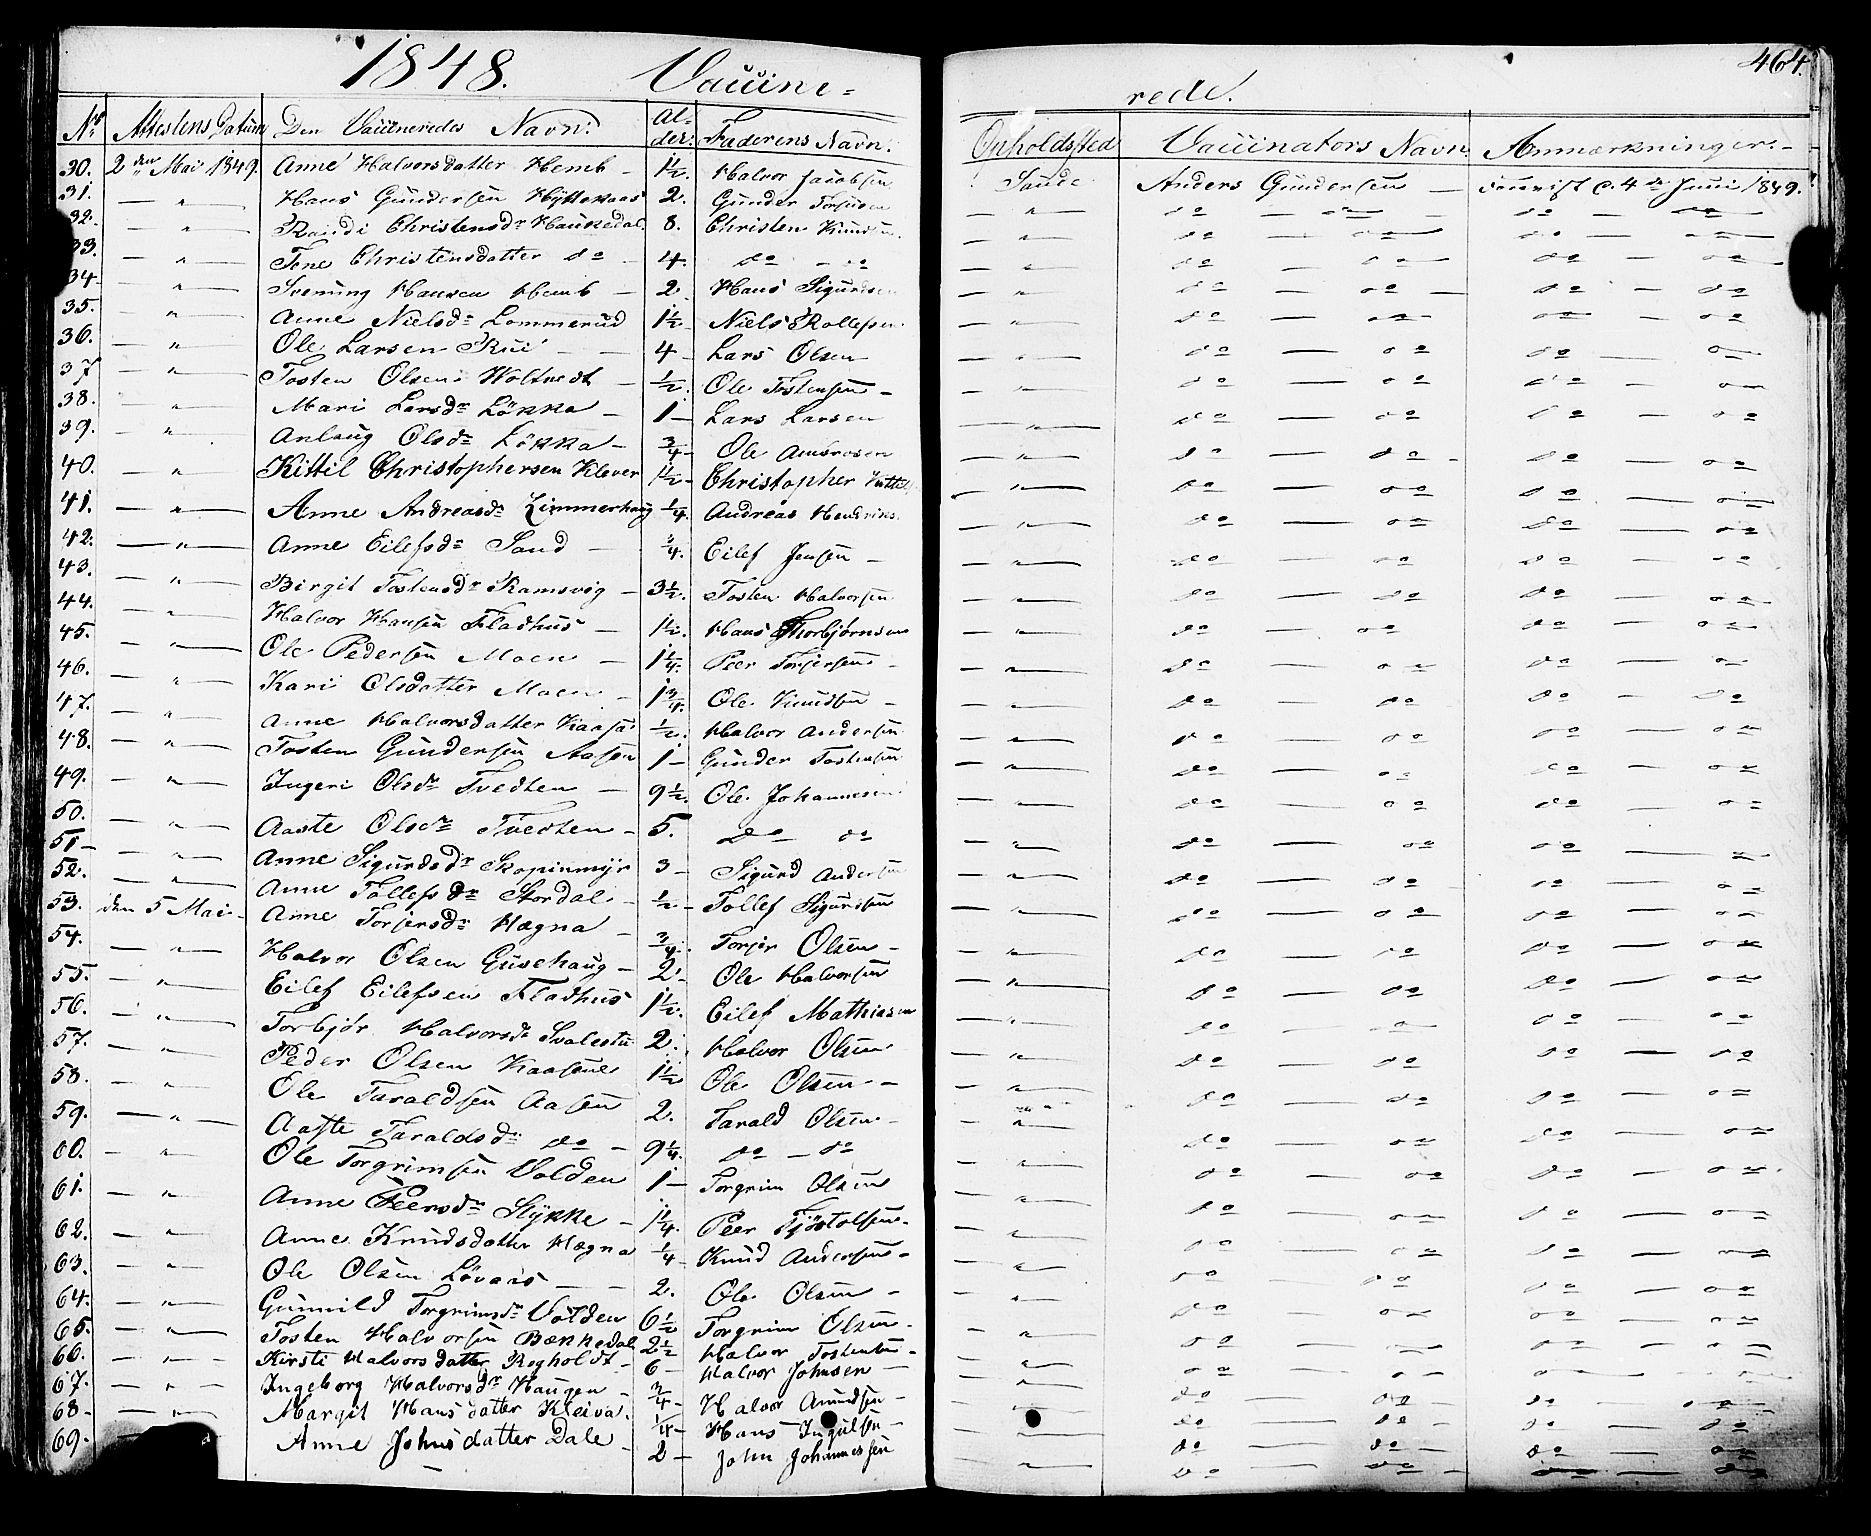 1848. Vaccine=
rede. 464.
No Attestens Datum Den Vaccineredes Navn: Al-der: Faderens Navn: Opholdssted Vaccinators Navn. Anmærkninger.
30. 2den Mai 1849. Anne Halvorsdatter Hemb - 1½. Halvor Jacobsen Saude Anders Gundersen - 4de Juni 1849.
31. — " — Hans Gundersen 2. Gunder — " — do — do do — do
32. — " — Randi Christensdr Haukedal. 8. Christen Knudsen — " — do — do do — do
33. — " — Tone Christensdatter do - 4. do - do — " — do — do do — do
34 — " — Svenung Hansen Hemb — 2. Hans Sigurdsen — " — do — do do — do
35. — " — Anne Nielsdr Lommerud 1½ Niels Rollefsen — " — do — do do — do
36. — " — Ole Larsen Rui — 4 - Lars Olsen — " — do — do do — do
37 — " — Tosten Olsen Holtvedt - ½. Ole Tostensen - — " — do — do do — do
38. — " — Mari Larsdr Løkka - 1 — Lars Larsen — " — do — do do — do
39. — " — Anlaug Olsdr Løkka - ¾ Ole Ambrosen — " — do — do do — do
40. — " — Kittil Christophersen Klever 1½ - Christopher — " — do — do do — do
41. — " — Anne Andreasdr Zimmerhaug ¼. Andreas Hendriks. — " — do — do do — do
42. — " — Anne Eilefsdr Sand — ¾. Eilef Jensen - — " — do — do do — do
43. — " — Birgit Tostensdr Ramsvig - 3½. Tosten Halvorsen — " — do — do do — do
44. — " — Halvor Hansen Fladhus — 1½. Hans Thorbjørnsen — " — do — do do — do
45. — " — Ole Pedersen Moen — 1¼. Peer Torjersen - — " — do — do do — do
46. — " — Kari Olsdatter Moen — 1¾. Ole Knudsen - — " — do — do do — do
47. — " — Anne Halvorsdatter ½. Halvor Andersen — " — do — do do — do
48. — " — Tosten Gundersen Aasen 1 — Gunder Tostensen — " — do — do do — do
49. — " — Ingeri Olsdr Tvedten — 9½. Ole Johannesen — " — do — do do — do
50. — " — Aaste Olsdr Tvedten - 5. do do — " — do — do do — do
51 - — " — Anne Sigurdsdr Skopinmyr 3 - Sigurd Andersen — " — do — do do — do
52. — " — Anne Tollefsdr Stordal - ½ - Tollef Sigurdsen — " — do — do do — do
53. den 5 Mai - Anne Torjersdr Hægna - ¾. Torjer Olsen - — " — do — do do — do
54. — " — Halvor Olsen Gusehaug - 2 - Ole Halvorsen — " — do — do do — do
55. — " — Eilef Eilefsen Fladhus 1½. Eilef Mathiasen — " — do — do do — do
56. — " — Torbjør Halvorsdr 2. Halvor Olsen — " — do — do do — do
57. — " — Peder Olsen Kaasene 1½ Ole Olsen - — " — do — do do — do
58. — " — Ole Taraldsen Aasen 2. Tarald Olsen - — " — do — do do — do
59. — " — Aaste Taraldsdr do - 9¼. do - do — " — do — do do — do
60. — " — Ole Torgrimsen Volden 1 — Torgrim Olsen — " — do — do do — do
61. — " — Anne Peersdr Stykke - 1¼. Peer Tjøstolsen - — " — do — do do — do
62. — " — Anne Knudsdatter Hægna ¼ Knud Andersen - — " — do — do do — do
63. — " — Ole Olsen Løvaas — 2. Ole Olsen - — " — do — do do — do
64. — " — Gunnild Torgrimsdr Volden 6½ Torgrim Olsen - — " — do — do do — do
65. — " — Tosten Halvorsen Bækkedal 2½ Halvor Tostensen - — " — do — do do — do
66. — " — Kirsti Halvorsdatter Regholdt - 6 - Halvor Johnsen — — " — do — do do — do
67. — " — Ingeborg Halvorsdr Haugen - ¾ - Halvor Amundsen - — " — do — do do — do
68 - — " — Margit Hansdatter Kleiva. ¼ - Hans Ingulsen - — " — do — do do — do
69. Anne Johnsdatter Dale - 2 - John Johannessen — " — do — do do — do